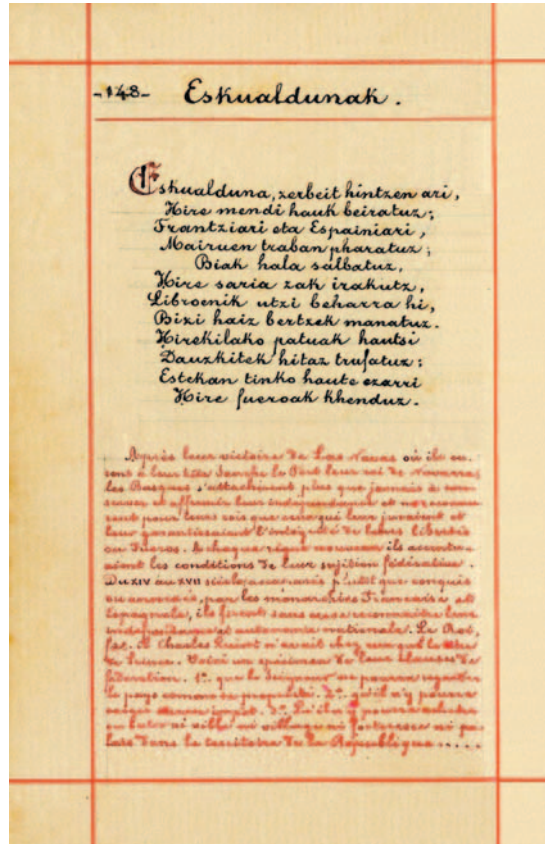 -148- Eskualdunak.
Eskualduna, zerbeit hintzen ari,
Hire mendi hauk beiratuz;
Frantziari eta Espainiari,
Mairuen traban pharatuz;
Biak hala salbatuz,
Hire saria zak irakutz,
Libroenik utzi beharra hi,
Bizi haiz bertzek manatuz.
Hirekilako patuak hautsi
Dauzkitek hitaz trufatuz;
Estekan tinko haute ezarri
Hire fueroak khenduz.
Après leur victoire de Las Navas où ils eu-
rent à leur tête Sanche le Fort leur roi de Navarre,
les Basques s'attachèrent plus que jamais à con-
server et affermir leur indépendance et ne reconnu-
rent pour leurs rois que ceux qui leur juraient et
leur garantissaient l'intégrité de leurs libertés
ou Fueros. A chaque règne nouveau ils
les conditions de leur sujétion fédérative.
Du XIV au XVII siècle plutôt que conquis
par les monarchies Française et
Espagnole, ils firent sans cesse reconnaître leur
indépendance et autonomie nationale. Le Roi,
Charles Quint n'avait chez eux que le titre
de Prince. Voici un spécimen de leur clauses de
fédération. 1º. que le Seigneur ne pourra regarder
le pays comme sa propriété. 2º. qu'il n'y pourra
aucun impôt. 3º. Qu'il n'y pourra acheter
ni ville ni village ni forteresse ni pa-
lais dans le territoire de la République.....